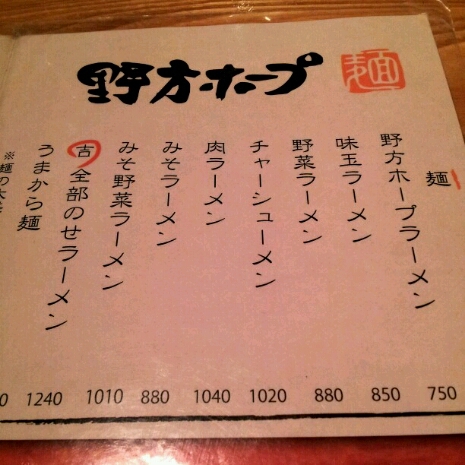 野方ホープ
麺
麺
野方ホープラーメン
味玉ラーメン
野菜ラーメン
チャーシューメン
肉ラーメン
みそラーメン
みそ野菜ラーメン
吉 全部のせラーメン
うまから麺
※麺の大
750
850
880
1020
1040
880
1010
1240
0